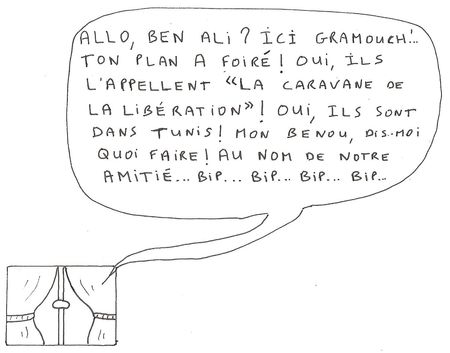 ALLO, BEN ALI? ICI GRAMOUCH!..
TON PLAN A FOIRÉ! OUI, ILS
L'APPELLENT "LA CARAVANE DE
LA LIBÉRATION"! OUI, ILS SONT
DANS TUNIS! MON BENOU, DIS-MOI
QUOI FAIRE! AU NOM DE NOTRE
AMITIÉ... BIP... BIP... BIP... BIP...